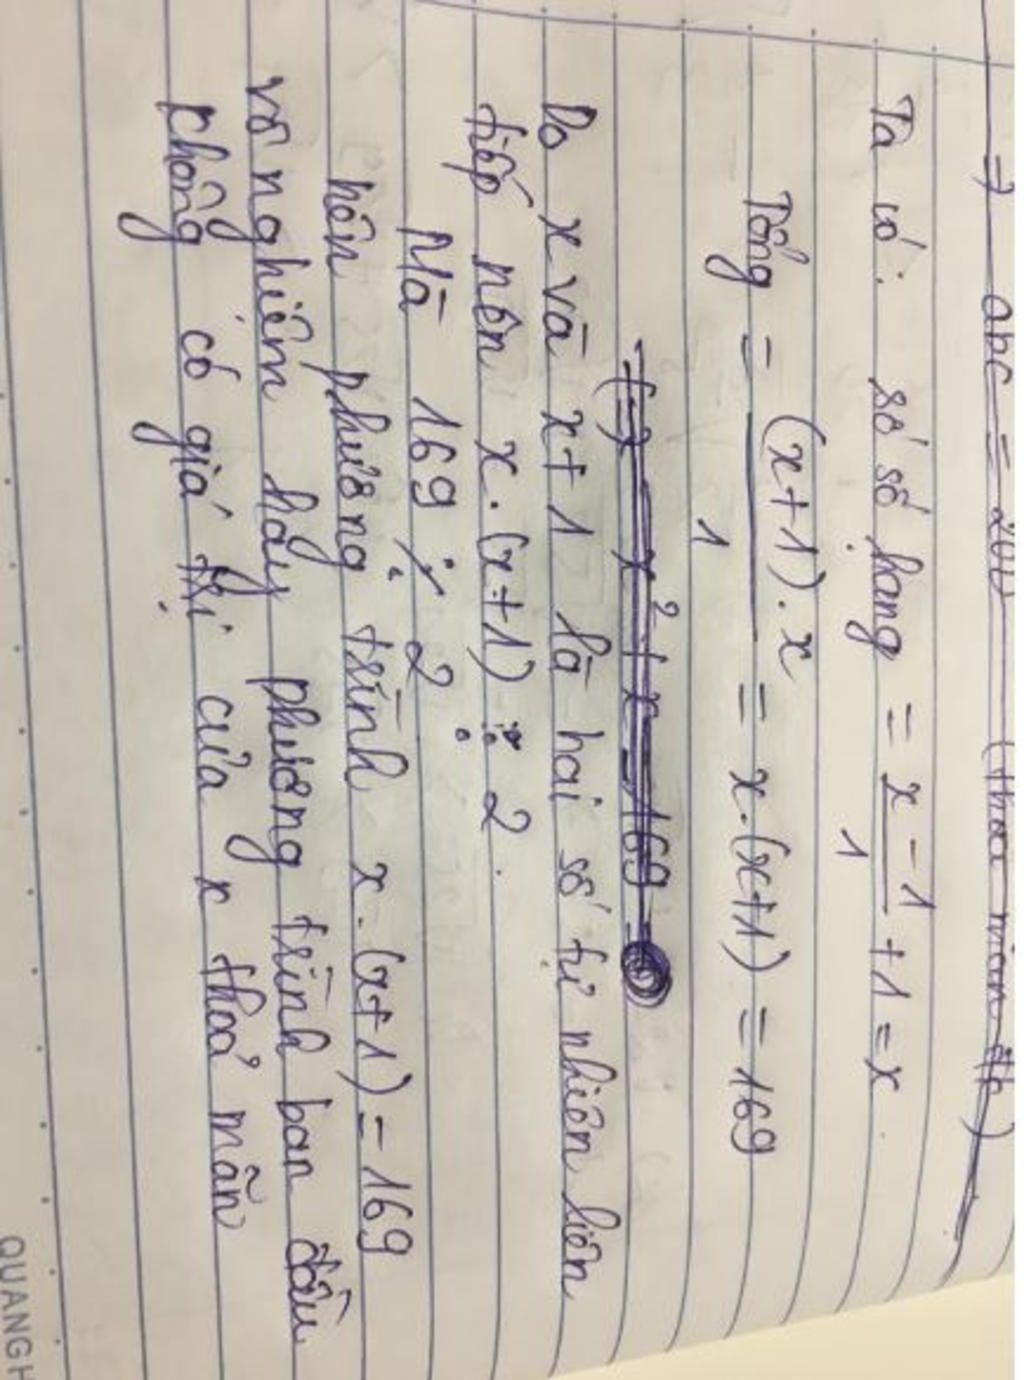 => abc = 200 (thoả mãn đb)
Ta có: số số hạng = x - 1 / 1 + 1 = x.
Tổng = (x+1).x / 1 = x.(x+1) = 169
(=) x² + x = 169
Do x và x+1 là hai số tự nhiên liên
tiếp nên x.(x+1) ⋮ 2.
Mà 169 ⋮̸ 2
nên phương trình x.(x+1) = 169
vô nghiệm hay phương trình ban đầu
không có giá trị của x thoả mãn
QUANGH